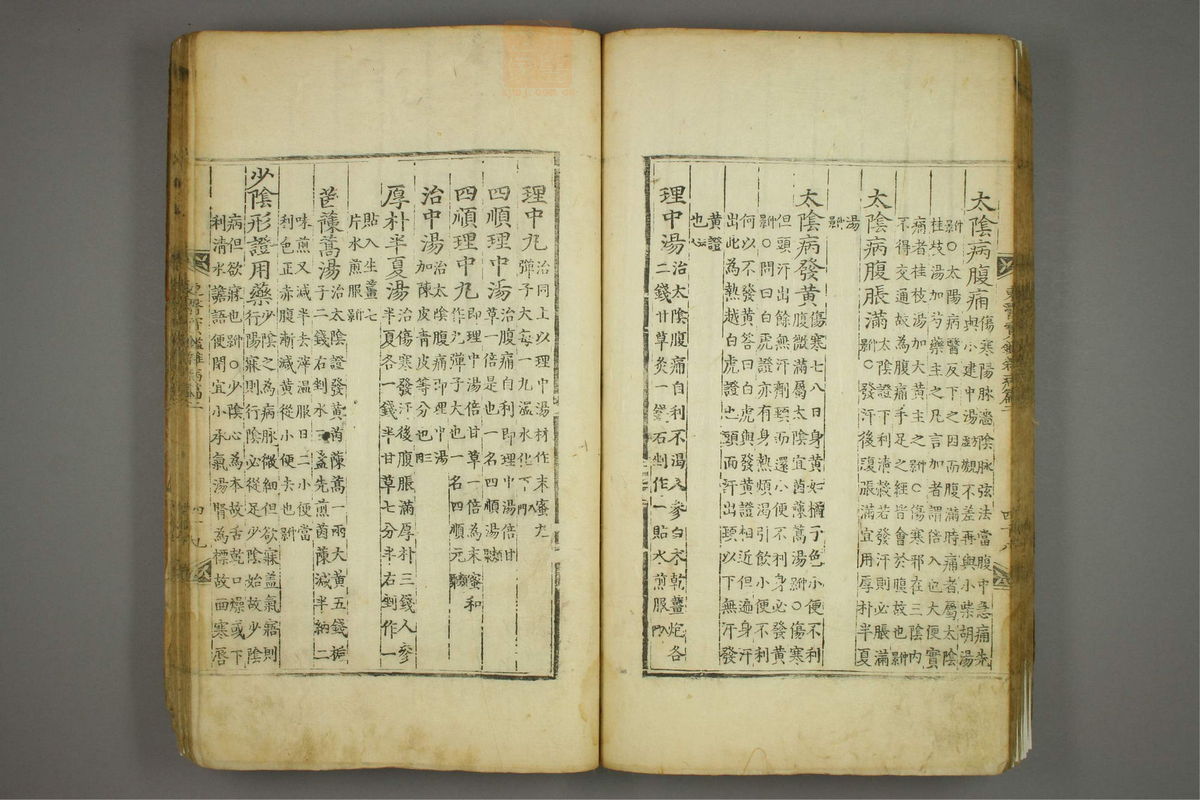 太陰病腹痛 傷寒陽脉澁陰脉弦法當腹中急痛先
與小建中湯 不差再與小柴胡湯
○太陽病醫反下之因而腹滿時痛者屬太陰
桂枝湯加芍藥主之凡言加者謂倍入也大便實
痛者桂枝湯加大黄主之 ○傷寒邪在三陰内
不得交通故爲腹痛手足之經皆會於腹故也
太陰病腹脹滿 太陰證下利淸穀若發汗則必脹滿
○發汗後腹脹滿宜用厚朴半夏
湯
太陰病發黄 傷寒七八日身黄如橘子色小便不利
腹微滿屬太陰宜茵蔯蒿湯 ○傷寒
但頭汗出餘無汗劑頸而還小便不利身必發黄
○問曰白虎證亦有身熱煩渴引飮小便不利
何以不發黄答曰白虎與發黄證相近但遍身汗
出此爲熱越白虎證也頭面汗出頸以下無汗發
黄證
也
理中湯 治太陰腹痛自利不渴人參白朮乾薑炮各
二錢甘草灸一錢右剉作一貼水煎服
理中丸 治同上以理中湯材作末蜜丸
彈子大每一丸溫水化下
四順理中湯 治腹痛自利即理中湯倍甘
草一倍是也一名四順湯
四順理中丸 即理中湯甘草一倍爲末蜜和
作丸彈子大也一名四順元
治中湯 治太陰腹痛即理中湯
加陳皮靑皮等分也
厚朴半夏湯 治傷寒發汗後腹脹滿厚朴三錢人參
半夏各一錢半甘草七分半右剉作一
貼入生薑七
片水煎服
茵蔯蒿湯 治太陰證發黄茵蔯蒿一兩大黄五錢梔
子二錢右剉水三盞先煎茵蔯減半納二
味煎又減半去滓溫服日二小便當
利色正赤腹漸減黄從小便去也
少陰形證用藥 少陰之爲病脉微細但欲寐盖氣寤則
行陽寐則行陰必從足少陰始故少陰
病但欲寐也 ○少陰心爲本故舌乾口燥或下
利淸水譫語便閉宜小承氣湯腎爲標故面寒唇